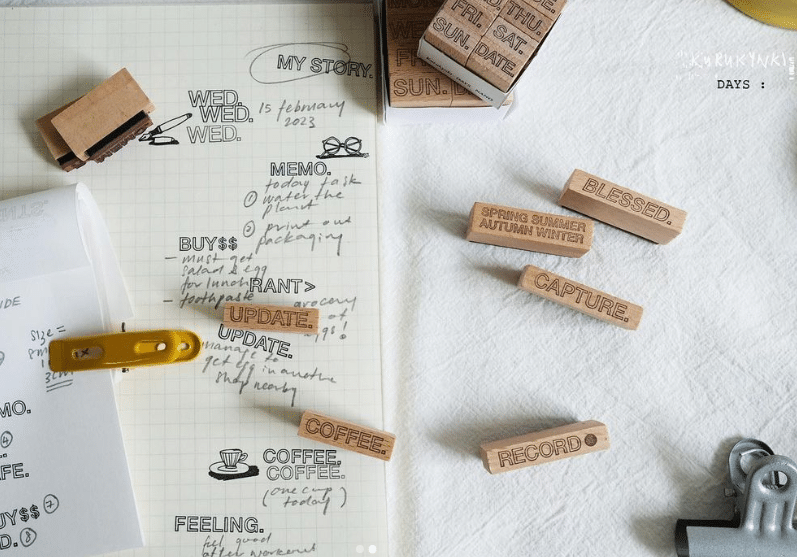 MY STORY.
WED.
WED.
WED.
15 february
2023
MEMO.
today task
① water the
plant
② print out
packaging
BUY$$
- must get
salad & egg
for lunch
- toothpaste
RANT>
grocery
of
eggs!
UPDATE.
UPDATE.
manage to
get egg in another
shop nearby
COFFEE.
COFFEE.
COFFEE.
(one cup
today)
FEELING.
feel good
after workout
size =
3cm
MO.
④
FE.
UY$$ ⑦
D. ⑧
FRI.
THU.
SUN.
SAT.
DATE
WED.
FRI.
SUN.
KURUKYNKI
DAYS :
BLESSED.
SPRING SUMMER
AUTUMN WINTER
CAPTURE.
RECORD